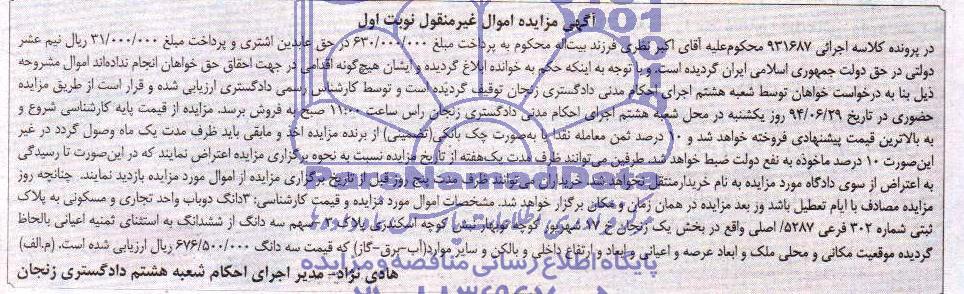 آگهی مزایده اموال غیرمنقول نوبت اول
در پرونده کلاسه اجرائی ۹۳۱۶۸۷ محکوم‌علیه آقای اکبر نظری فرزند بیت‌اله محکوم به پرداخت مبلغ ۶۳۰/۰۰۰/۰۰۰ در حق عابدین اشتری و پرداخت مبلغ ۳۱/۰۰۰/۰۰۰ ریال نیم عشر
دولتی در حق دولت جمهوری اسلامی ایران گردیده است. و با توجه به اینکه حکم به خوانده ابلاغ گردیده و ایشان هیچ‌گونه اقدامی در جهت احقاق حق خواهان انجام نداده‌اند اموال مشروحه
ذیل بنا به درخواست خواهان توسط شعبه هشتم اجرای احکام مدنی دادگستری زنجان توقیف گردیده است و توسط کارشناس رسمی دادگستری ارزیابی شده و قرار است از طریق مزایده
حضوری در تاریخ ۹۴/۰۶/۲۹ روز یکشنبه در محل شعبه هشتم اجرای احکام مدنی دادگستری زنجان راس ساعت ۱۱:۰۰ صبح به فروش برسد. مزایده از قیمت پایه کارشناسی شروع و
به بالاترین قیمت پیشنهادی فروخته خواهد شد و ۱۰ درصد ثمن معامله نقدا یا به‌صورت چک بانکی(تضمینی) از برنده مزایده اخذ و مابقی باید ظرف مدت یک ماه وصول گردد در غیر
این‌صورت ۱۰ درصد ماخوذه به نفع دولت ضبط خواهد شد. طرفین می‌توانند ظرف مدت یک‌هفته از تاریخ مزایده نسبت به نحوه برگزاری مزایده اعتراض نمایند که در این‌صورت تا رسیدگی
به اعتراض از سوی دادگاه مورد مزایده به نام خریدار منتقل نخواهد شد. خریداران می‌توانند ظرف مدت پنج روز قبل از تاریخ برگزاری مزایده از اموال مورد مزایده بازدید نمایند. چنانچه روز
مزایده مصادف با ایام تعطیل باشد روز بعد مزایده در همان زمان و مکان برگزار خواهد شد. مشخصات اموال مورد مزایده و قیمت کارشناسی: ۳دانگ دوباب واحد تجاری و مسکونی به پلاک
ثبتی شماره ۳۰۲ فرعی /۵۲۸۷ اصلی واقع در بخش یک زنجان خ ۱۷ شهریور، کوچه نوبهار نبش کوچه اسکندری پلاک ۲۰ سهم سه دانگ از ششدانگ به استثنای ثمنیه اعیانی بالحاظ
گردیده موقعیت مکانی و محلی ملک و ابعاد عرصه و اعیانی و ابعاد و ارتفاع داخلی و بالکن و سایر موارد(آب-برق-گاز) که قیمت سه دانگ ۶۷۶/۵۰۰/۰۰۰ ریال ارزیابی شده است. (م.الف)
هادی نژاد- مدیر اجرای احکام شعبه هشتم دادگستری زنجان
ParsNamadData
پایگاه اطلاع رسانی مناقصه و مزایده